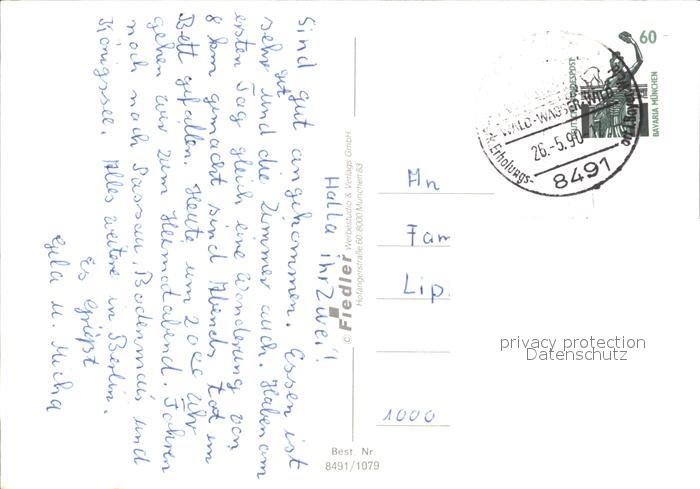 Hallo ihr Zwei!
Sind gut angekommen. Essen ist
sehr gut und die Zimmer auch. Haben am
ersten Tag gleich eine Wanderung von
8 km gemacht sind Abends tot im
Bett gefallen. Heute um 20 Uhr
gehen wir zum Heimatabend. Fahren
noch nach Passau, Bodenmais und
Königssee. Alles weitere in Berlin.
Es grüßt
Gila u. Micha
© Fiedler Werbestudio & Verlags GmbH
Hofangerstraße 60, 8000 München 83
Best. Nr.
8491/1079
60
DEUTSCHE BUNDESPOST
BAVARIA MÜNCHEN
WALD-WASSER-WILD
26.-5.90-17
8491
Erholungs-
An
Fam
Lip
1000
privacy protection
Datenschutz